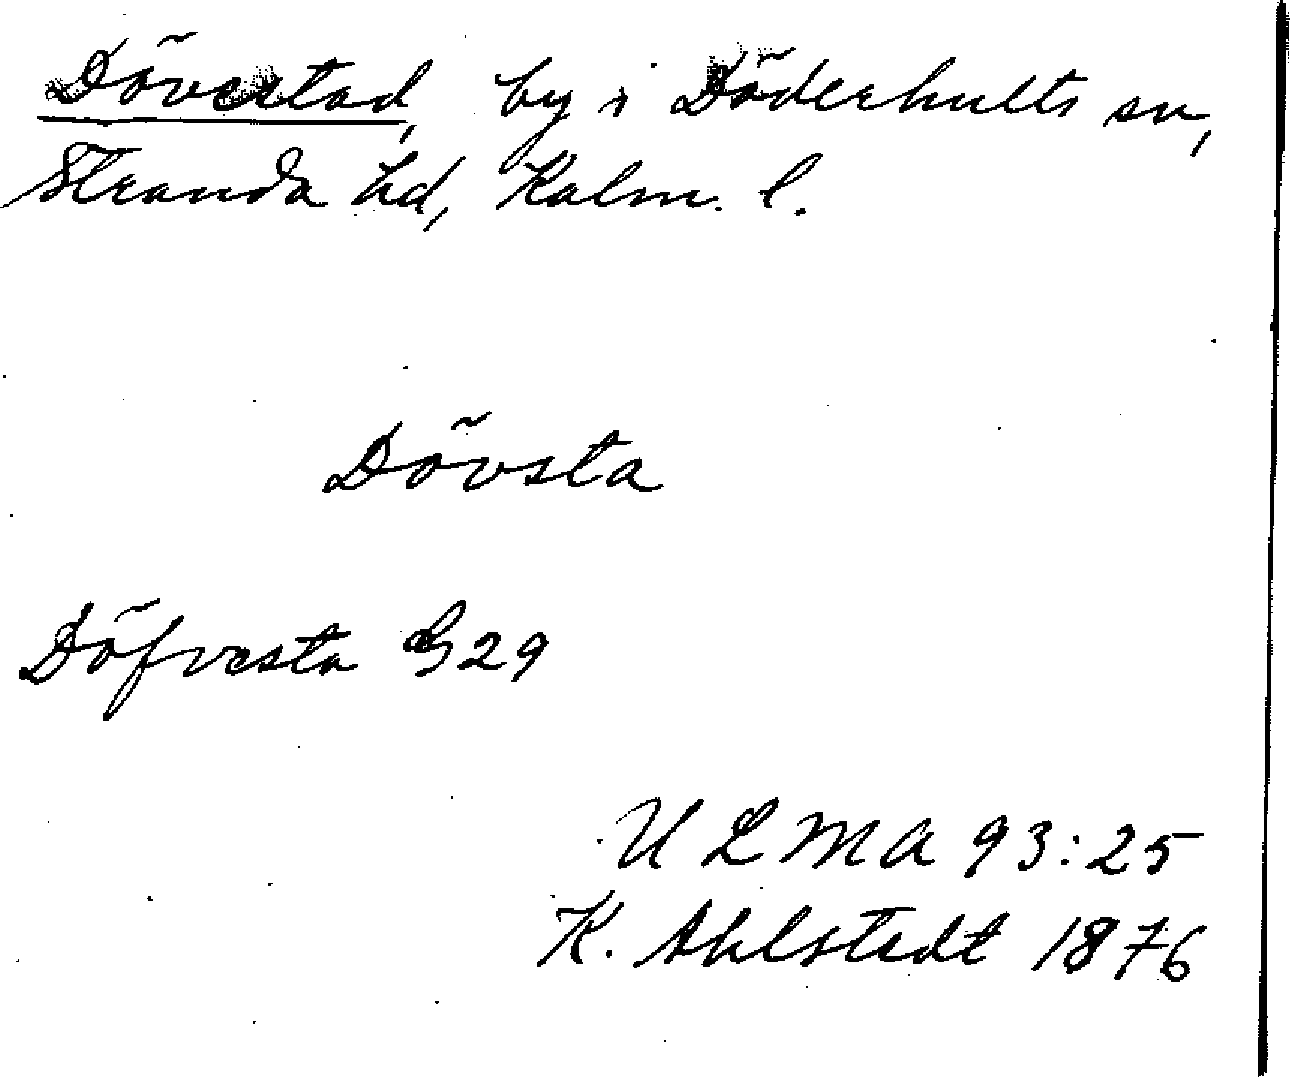 Dövestad, by i Döderhults sn,
Stranda hd, Kalm. l.
Dövsta
Döfvesta G29
ULMA 93:25
K. Ahlstedt 1876